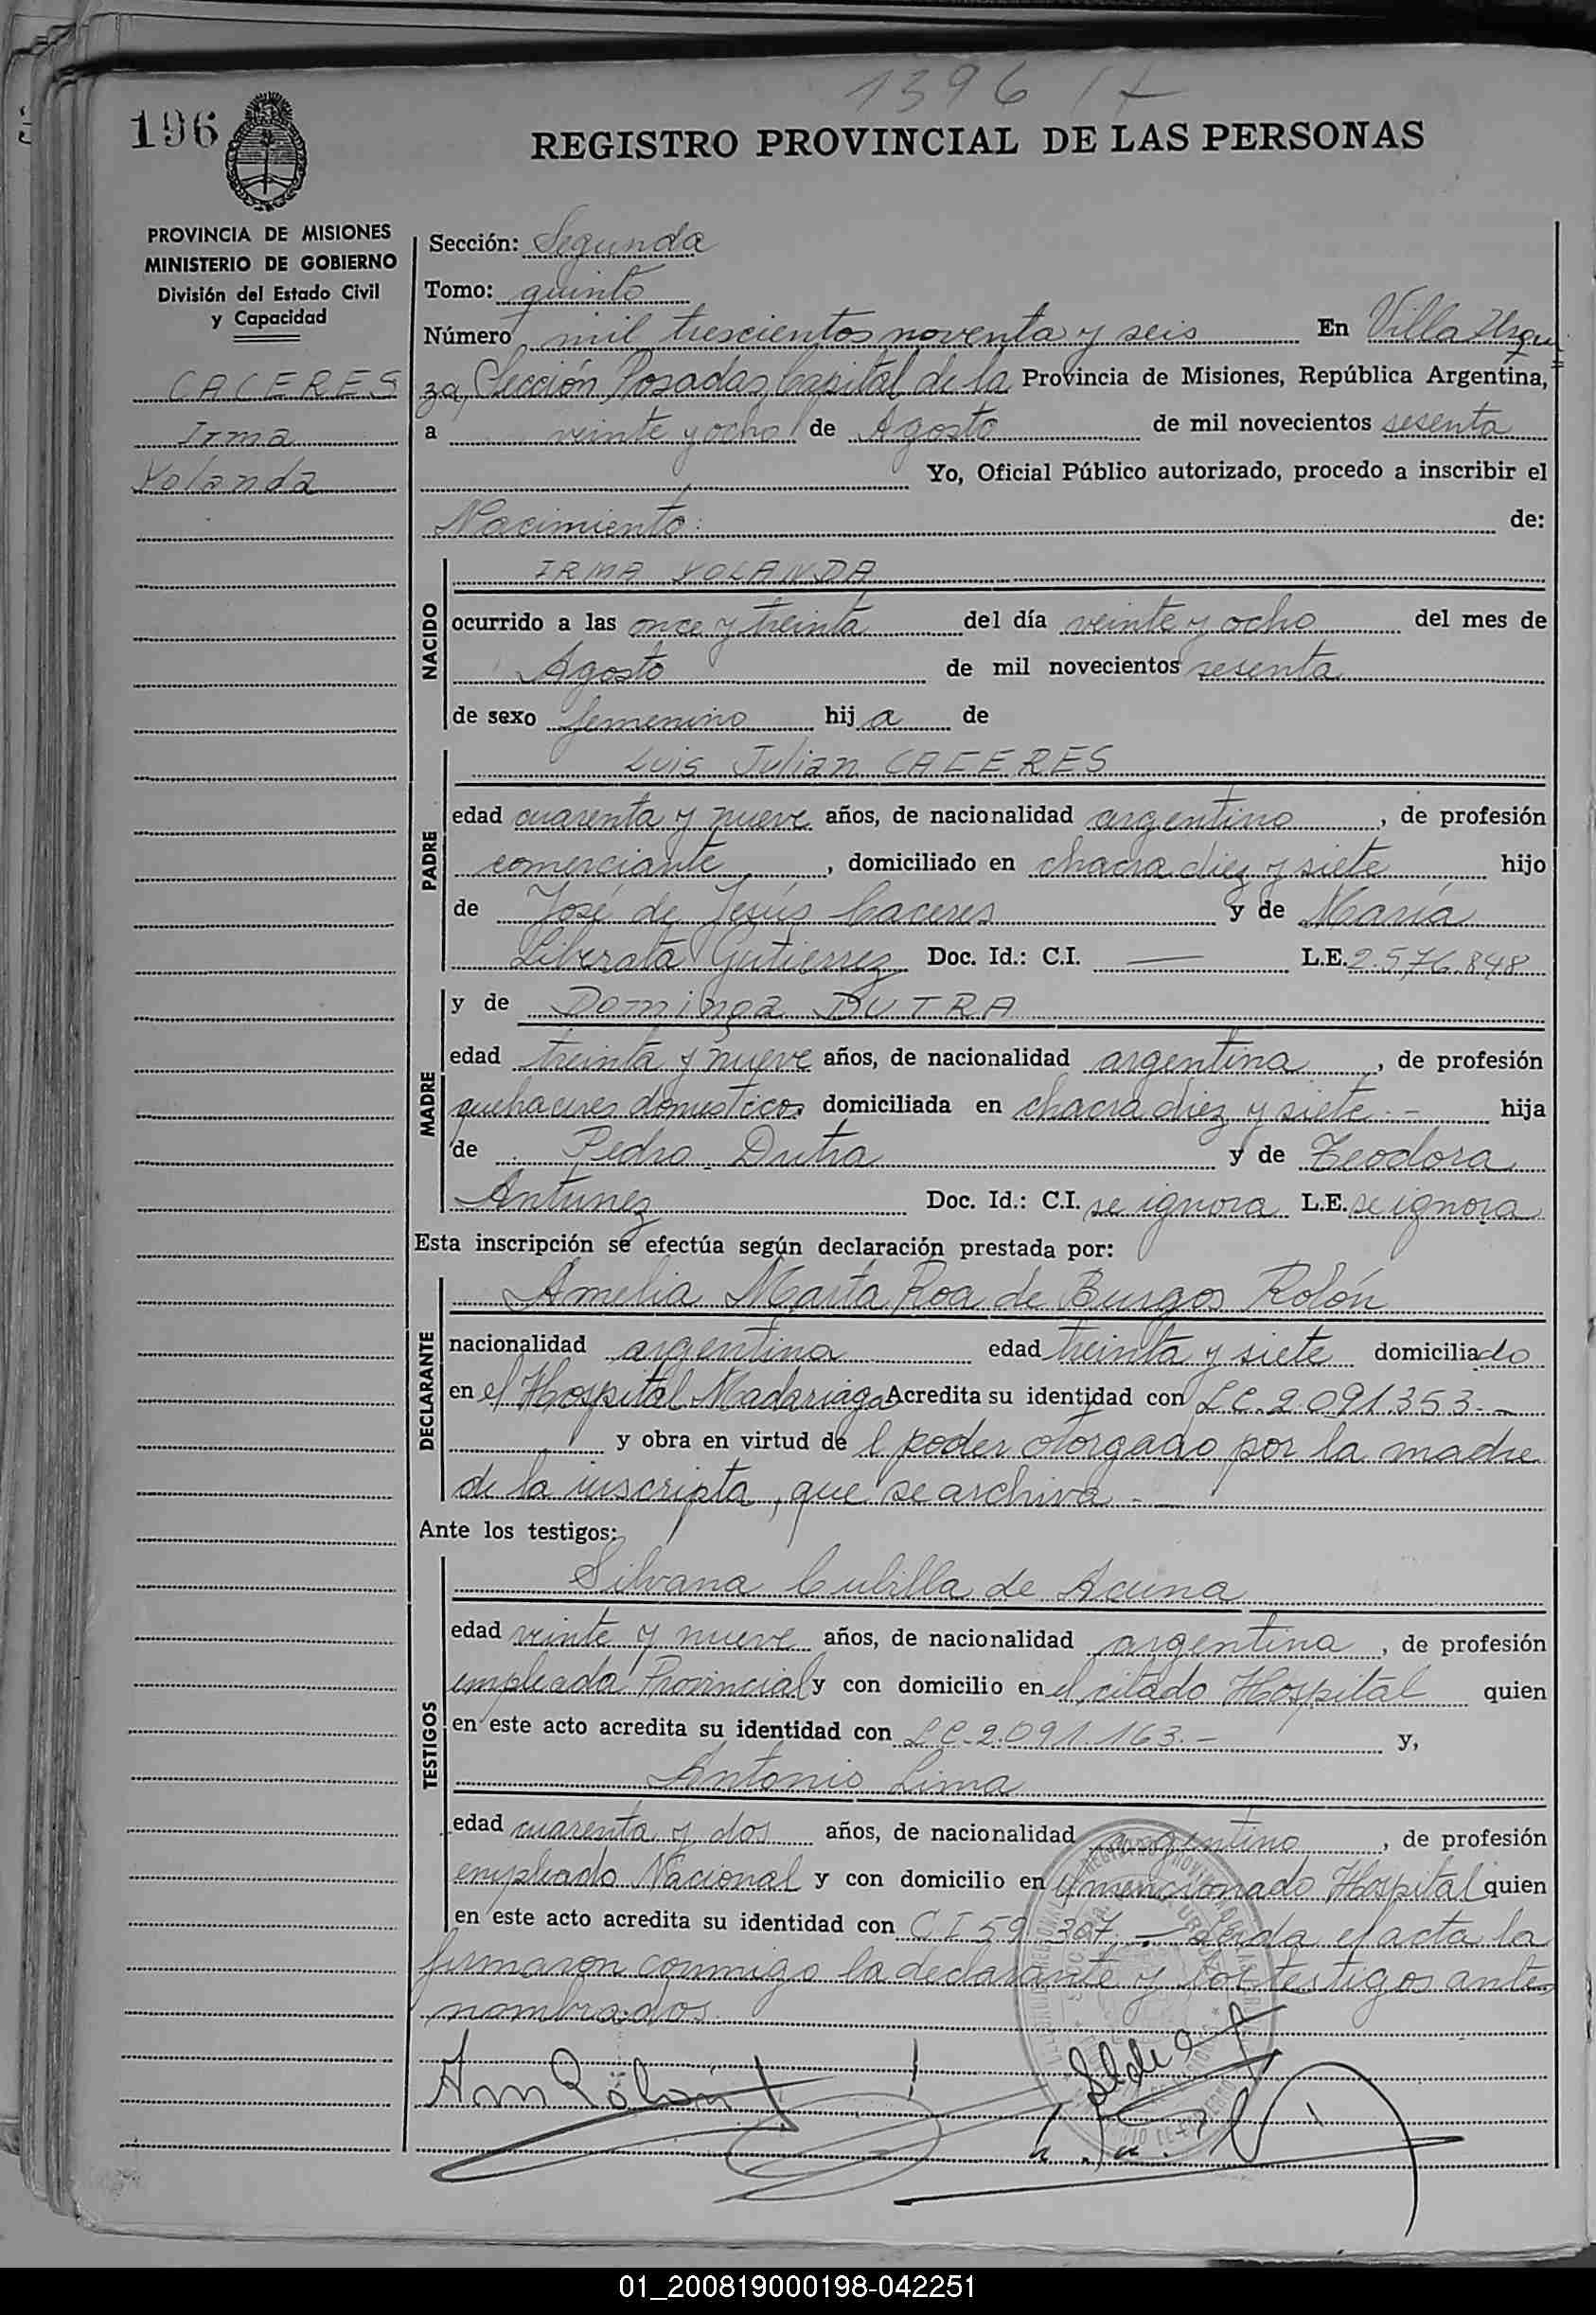 1396
196
REGISTRO PROVINCIAL DE LAS PERSONAS
PROVINCIA DE MISIONES
MINISTERIO DE GOBIERNO
División del Estado Civil
y Capacidad
CACERES
Irma
Yolanda
Sección: Segunda
Tomo: quinto
Número mil trescientos noventa y seis En Villa Urqui
za, Sección Posadas, Capital de la Provincia de Misiones, República Argentina,
a veinte y ocho de Agosto de mil novecientos sesenta
Yo, Oficial Público autorizado, procedo a inscribir el
Nacimiento de:
NACIDO
IRMA YOLANDA
ocurrido a las once y treinta del día veinte y ocho del mes de
Agosto de mil novecientos sesenta
de sexo femenino hij a de
PADRE
Luis Julian CACERES
edad cuarenta y nueve años, de nacionalidad argentino, de profesión
comerciante, domiciliado en chacra diez y siete hijo
de José de Jesús Caceres y de María
Liberata Gutierrez Doc. Id.: C.I. — L.E. 2.576.848
MADRE
y de Dominga DUTRA
edad treinta y nueve años, de nacionalidad argentina, de profesión
quehaceres domesticos domiciliada en chacra diez y siete.- hija
de Pedro Dutra y de Teodora
Antunez Doc. Id.: C.I. se ignora L.E. se ignora
Esta inscripción se efectúa según declaración prestada por:
DECLARANTE
Amelia Marta Roa de Burgos Rolón
nacionalidad argentina edad treinta y siete domiciliado
en el Hospital Madariaga Acredita su identidad con L.C. 2.091.353.-
y obra en virtud de l poder otorgado por la madre
de la inscripta, que se archiva.-
Ante los testigos:
TESTIGOS
Silvana Cubilla de Acuna
edad veinte y nueve años, de nacionalidad argentina, de profesión
empleada Provincial y con domicilio en el citado Hospital quien
en este acto acredita su identidad con L.C. 2.091.163.- y,
Antonio Lima
edad cuarenta y dos años, de nacionalidad argentino, de profesión
empleado Nacional y con domicilio en el mencionado Hospital quien
en este acto acredita su identidad con C I 59.307.- Leida el acta la
firmaron conmigo la declarante y los testigos ante
nombrados.
01_200819000198-042251